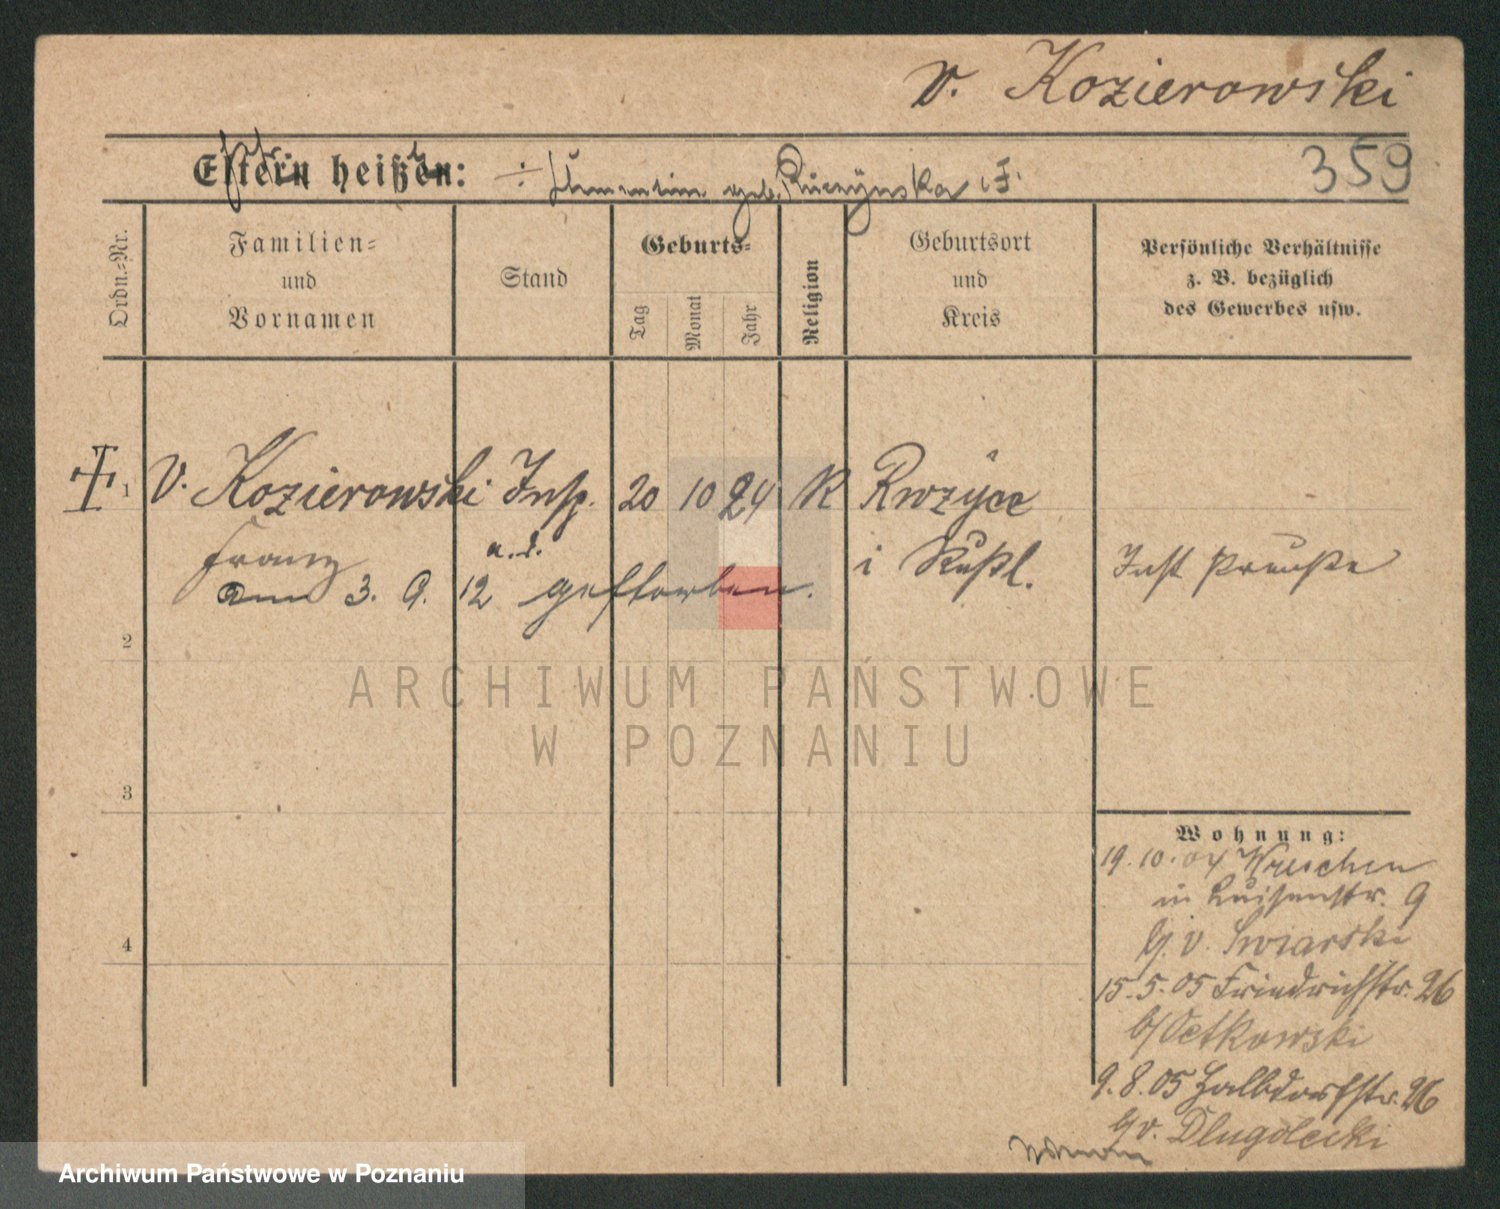 v. Kozierowski
Eltern heißen: geb. Ruczynska
359
Ordn.=Nr.
Familien=
und
Vornamen
Stand
Geburts=
Tag
Monat
Jahr
Religion
Geburtsort
und
Kreis
Persönliche Verhältnisse
z. B. bezüglich
des Gewerbes usw.
1 v. Kozierowski Insp. 20 10 24 K
Franz a. d. i Rußl. Inst Preuße
am 3. 9. 12 gestorben.
2
ARCHIWUM PAŃSTWOWE
W POZNANIU
3
Wohnung:
19.10.04 Wreschen
in Luisenstr. 9
b/ v. Swiarski
4
15.5.05 Friedrichstr. 26
b/ Vetkowski
9.8.05 Halbdorfstr. 26
b/ v. Dlugolecki
Archiwum Państwowe w Poznaniu